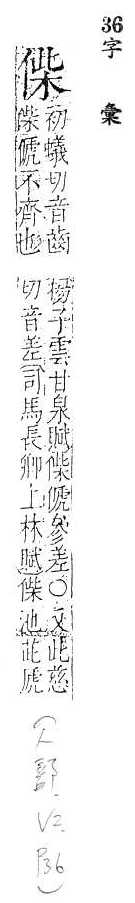 36
字彙
偨
初蟻切音齒
偨傂不齊也
揚子雲甘泉賦偨傂參差○又此慈
切音差司馬長卿上林賦偨池茈虒
(人部.V2.P36)